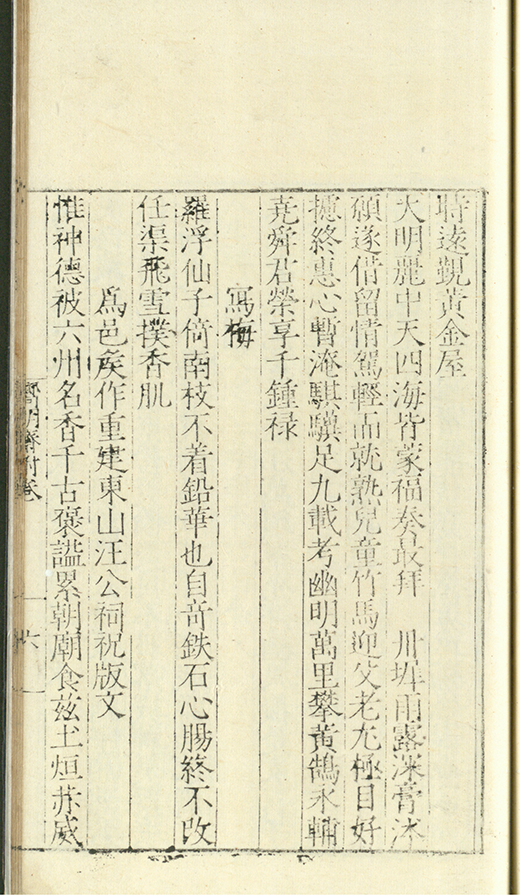 時遠覲黃金屋
大明麗中天四海皆蒙福奏最拜　丹墀雨露深膏沐
願遂借留情駕輕而就熟兒童竹馬迎父老尤極目好
攄終惠心暫淹騏驥足九載考幽明萬里攀黃鵠永輔
堯舜君榮享千鍾祿
寫梅
羅浮仙子倚南枝不着鉛華也自竒鉄石心腸終不改
任渠飛雪撲香肌
爲邑矦作重建東山汪公祠祝版文
惟神德被六州名香千古褒謚累朝廟食茲土烜赤威
明齋附卷
六